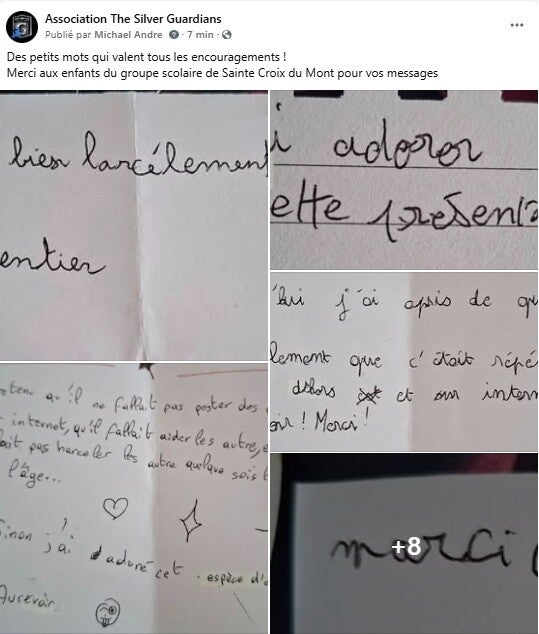 Association The Silver Guardians
Publié par Michael Andre · 7 min ·
Des petits mots qui valent tous les encouragements !
Merci aux enfants du groupe scolaire de Sainte Croix du Mont pour vos messages
bien larcélement
entier
i adorer
ette présent
'hui j'ai apris de qu
lement que c'était répé
dehors et sur intern
oir ! Merci !
retenu qu'il ne fallait pas poster des
internet, qu'il fallait aider les autre, e
lait pas harceler les autre quelque sois l
l'âge...
Sinon j'ai adoré cet espèce d'
Aurevoir
merci
+8